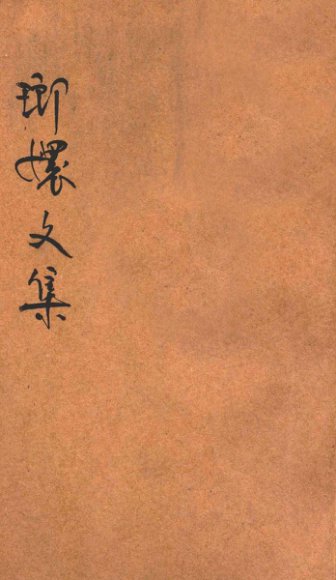 瑯嬛文集